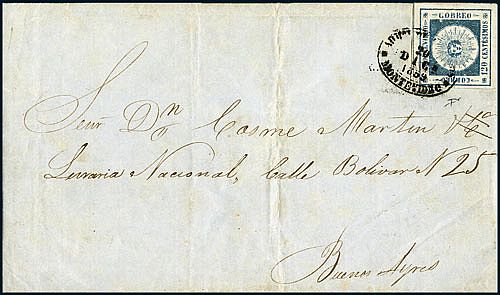 CORREO
120 CENTESIMOS
DIC
MONTEVIDEO
Señr Dn Cosme Martin
Libraria Nacional, Calle Bolivar N 25
Buenos Ayres